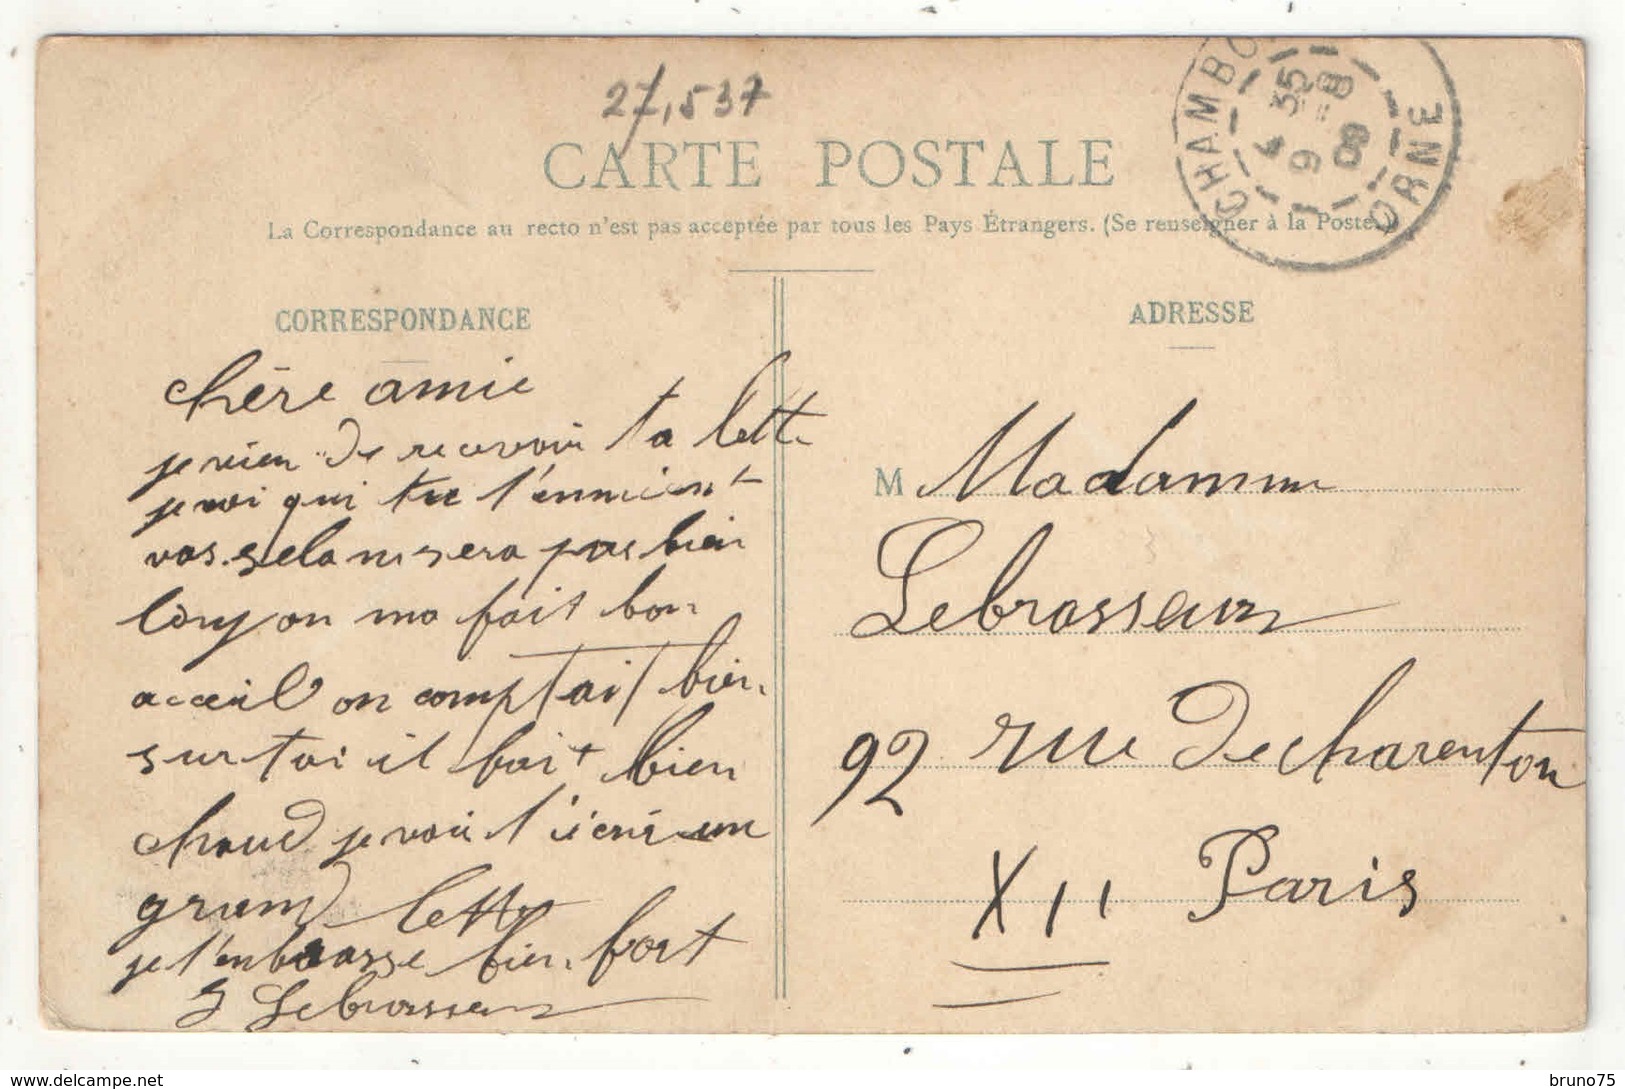 27,537
CHAMBO
ORNE
4 35
9 -8
08
CARTE POSTALE
La Correspondance au recto n'est pas acceptée par tous les Pays Étrangers. (Se renseigner à la Poste.)
CORRESPONDANCE
ADRESSE
chère amie
je vien de recevoir ta lettre
je voi qui tu t'ennui
vas. sela ni sera pas bien
long on ma fait bon
acceuil on comptait bien
sur toi il fait bien
chaud je vais t'écrir un
grand lettre
je t'embrasse bien fort
Lebrasseur
M Madamme
Lebrasseur
92 rue de charenton
XII Paris
bruno75